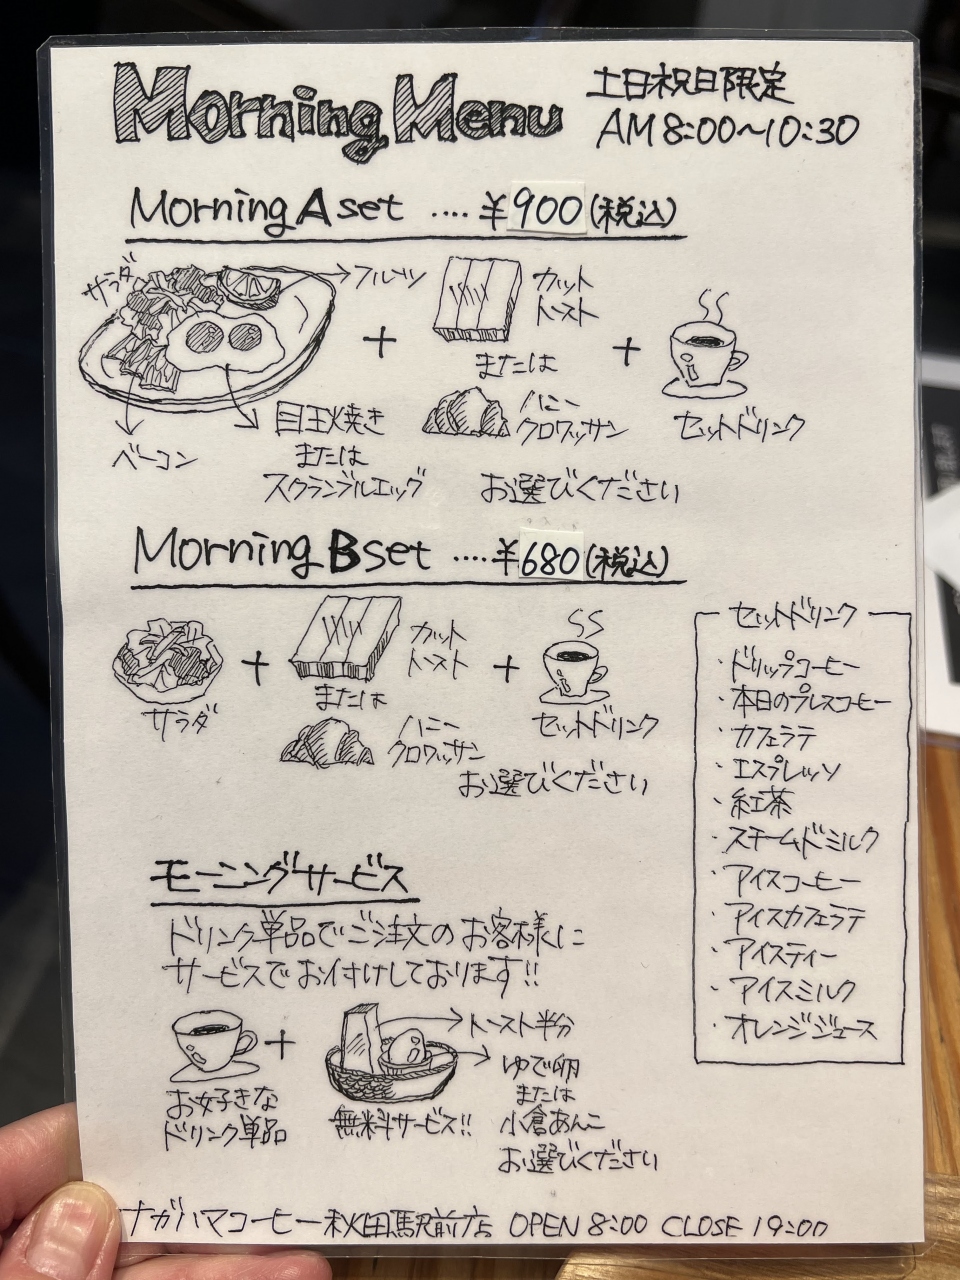 Morning Menu
土日祝日限定
AM8:00〜10:30
Morning A set ‥‥ ¥900(税込)
サラダ
フルーツ
ベーコン
目玉焼き
または
スクランブルエッグ
+
カット
トースト
または
ハニー
クロワッサン
お選びください
+
セットドリンク
Morning B set ‥‥ ¥680(税込)
サラダ
+
カット
トースト
または
ハニー
クロワッサン
お選びください
+
セットドリンク
セットドリンク
・ドリップコーヒー
・本日のプレスコーヒー
・カフェラテ
・エスプレッソ
・紅茶
・スチームドミルク
・アイスコーヒー
・アイスカフェラテ
・アイスティー
・アイスミルク
・オレンジジュース
モーニングサービス
ドリンク単品でご注文のお客様に
サービスでお付けしております!!
お好きな
ドリンク単品
+
無料サービス!!
トースト半分
ゆで卵
または
小倉あんこ
お選びください
ナガハマコーヒー秋田駅前店 OPEN 8:00 CLOSE 19:00